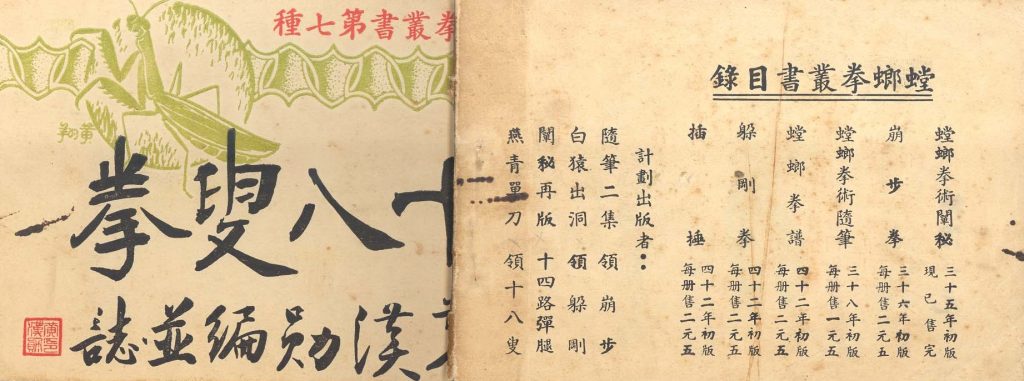 螳螂拳叢書目錄
螳螂拳術闡秘 三十五年初版 現已售完
崩步拳 三十六年初版 每册售二元五
螳螂拳術隨筆 三十八年初版 每册售一元五
螳螂拳譜 四十二年初版 每册售二元五
躲剛拳 四十二年初版 每册售二元五
插捶 四十二年初版 每册售二元五
計劃出版者：
隨筆二集 領崩步
白猿出洞 領躲剛
闡秘再版 十四路彈腿
燕青單刀 領十八叟
拳叢書第七種
十八叟拳
漢勛編並誌